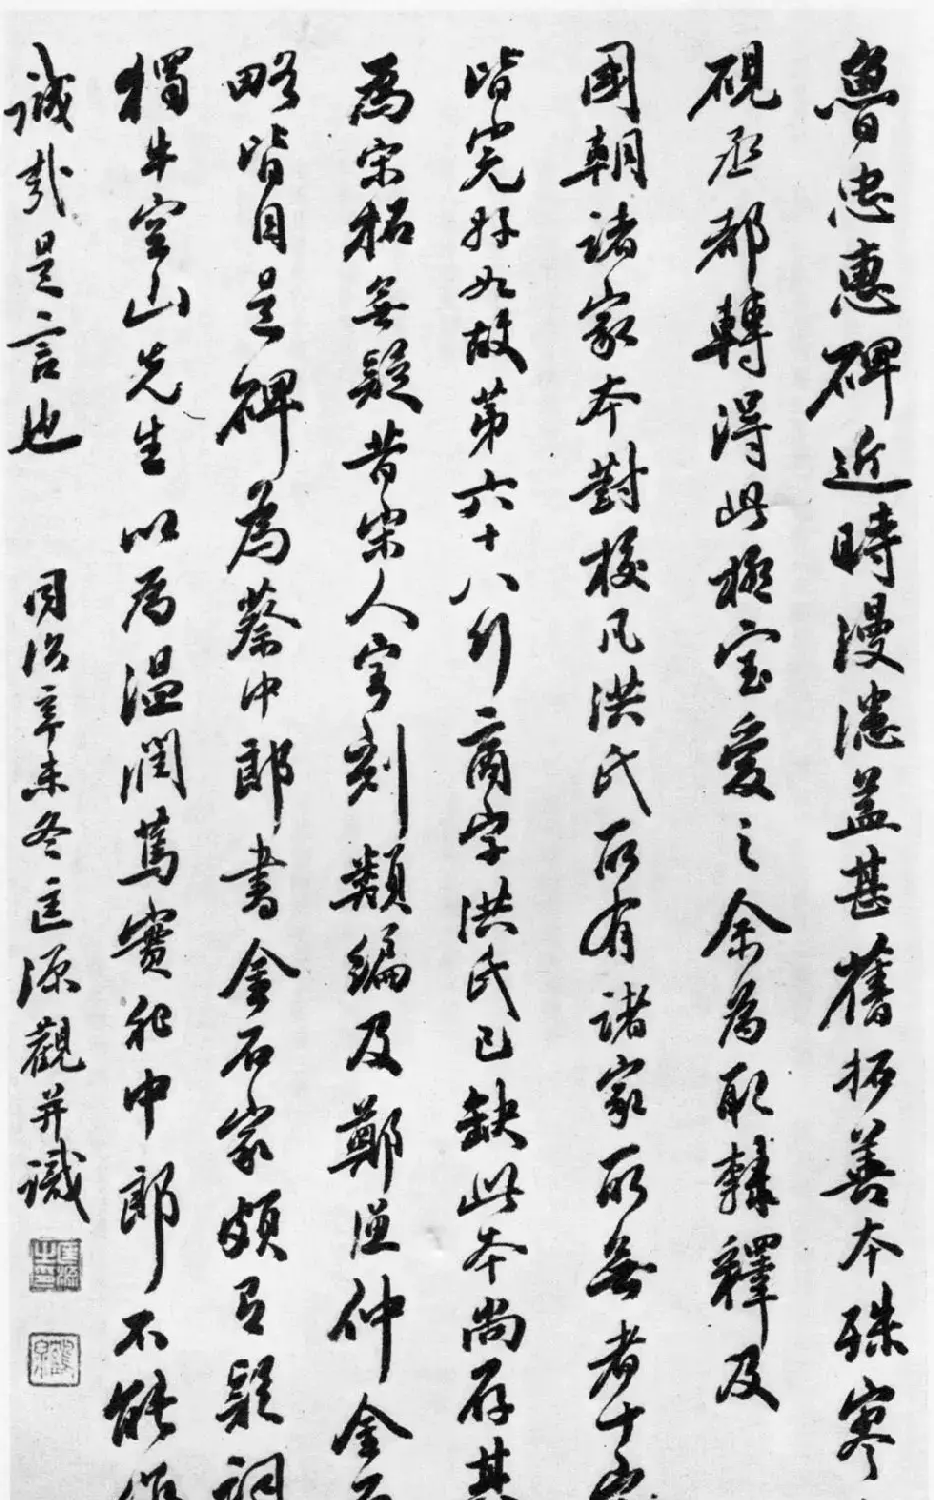 魯忠惠碑近時漫漶益甚舊拓善本殊寥
硯丞都轉得此極寶愛之余為取隸釋及
國朝諸家本對校凡洪氏所有諸家所無者十
皆完好如故第六十八行商字洪氏已缺此本尚存其
為宋拓無疑昔宋人字刻類編及鄭漁仲金石
略皆目是碑為蔡中郎書金石家頗有疑詞
獨牛空山先生以為溫潤篤實非中郎不能作
誠哉是言也 同治辛未冬匡源觀并識